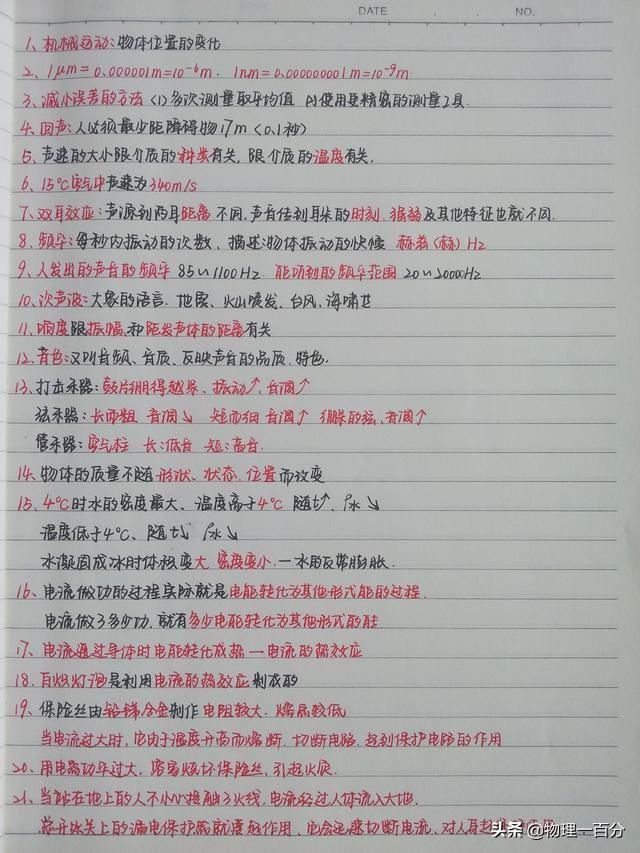 DATE NO.
1、机械运动:物体位置的变化
2、1μm=0.000001m=10⁻⁶m. 1nm=0.000000001m=10⁻⁹m
3、减小误差的方法 (1)多次测量取平均值 (2)使用更精密的测量工具.
4、回声:人必须最少距障碍物17m(0.1秒)
5、声速的大小跟介质的种类有关,跟介质的温度有关.
6、15℃空气中声速为340m/s
7、双耳效应:声源到两耳距离不同,声音传到耳朵的时刻、强弱及其他特征也就不同.
8、频率:每秒内振动的次数、描述:物体振动的快慢 赫兹(赫) Hz
9、人发出的声音的频率 85~1100Hz. 能听到的频率范围 20~20000Hz
10、次声波:大象的语言. 地震、火山喷发、台风、海啸等
11、响度跟振幅、和距发声体的距离有关
12、音色:又叫音频、音质、反映声音的品质、特色.
13、打击乐器:鼓皮绷得越紧、振动↗,音调↗
弦乐器:长而粗 音调↘ 短而细 音调↗ 绷紧的弦、音调↑
管乐器:空气柱 长:低音 短:高音.
14、物体的质量不随形状、状态、位置而改变
15、4℃时水的密度最大、温度高于4℃ 随t↑、ρ水↘
温度低于4℃、随t↓ ρ水↘
水凝固成冰时体积变大 密度变小.—水的反常膨胀.
16、电流做功的过程实际就是电能转化为其他形式能的过程.
电流做了多少功.就有多少电能转化为其他形式的能
17、电流通过导体时电能转化成热—电流的热效应
18、白炽灯泡是利用电流的热效应制成的
19、保险丝由铅锑合金制作 电阻较大.熔点较低
当电流过大时,它由于温度升高而熔断.切断电路.起到保护电路的作用
20、用电器功率过大,容易烧坏保险丝、引起火灾.
21、当站在地上的人不小心接触了火线,电流经过人体流入大地.
总开关上的漏电保护器就要起作用、它会迅速切断电流、对人身起
头条@物理一百分